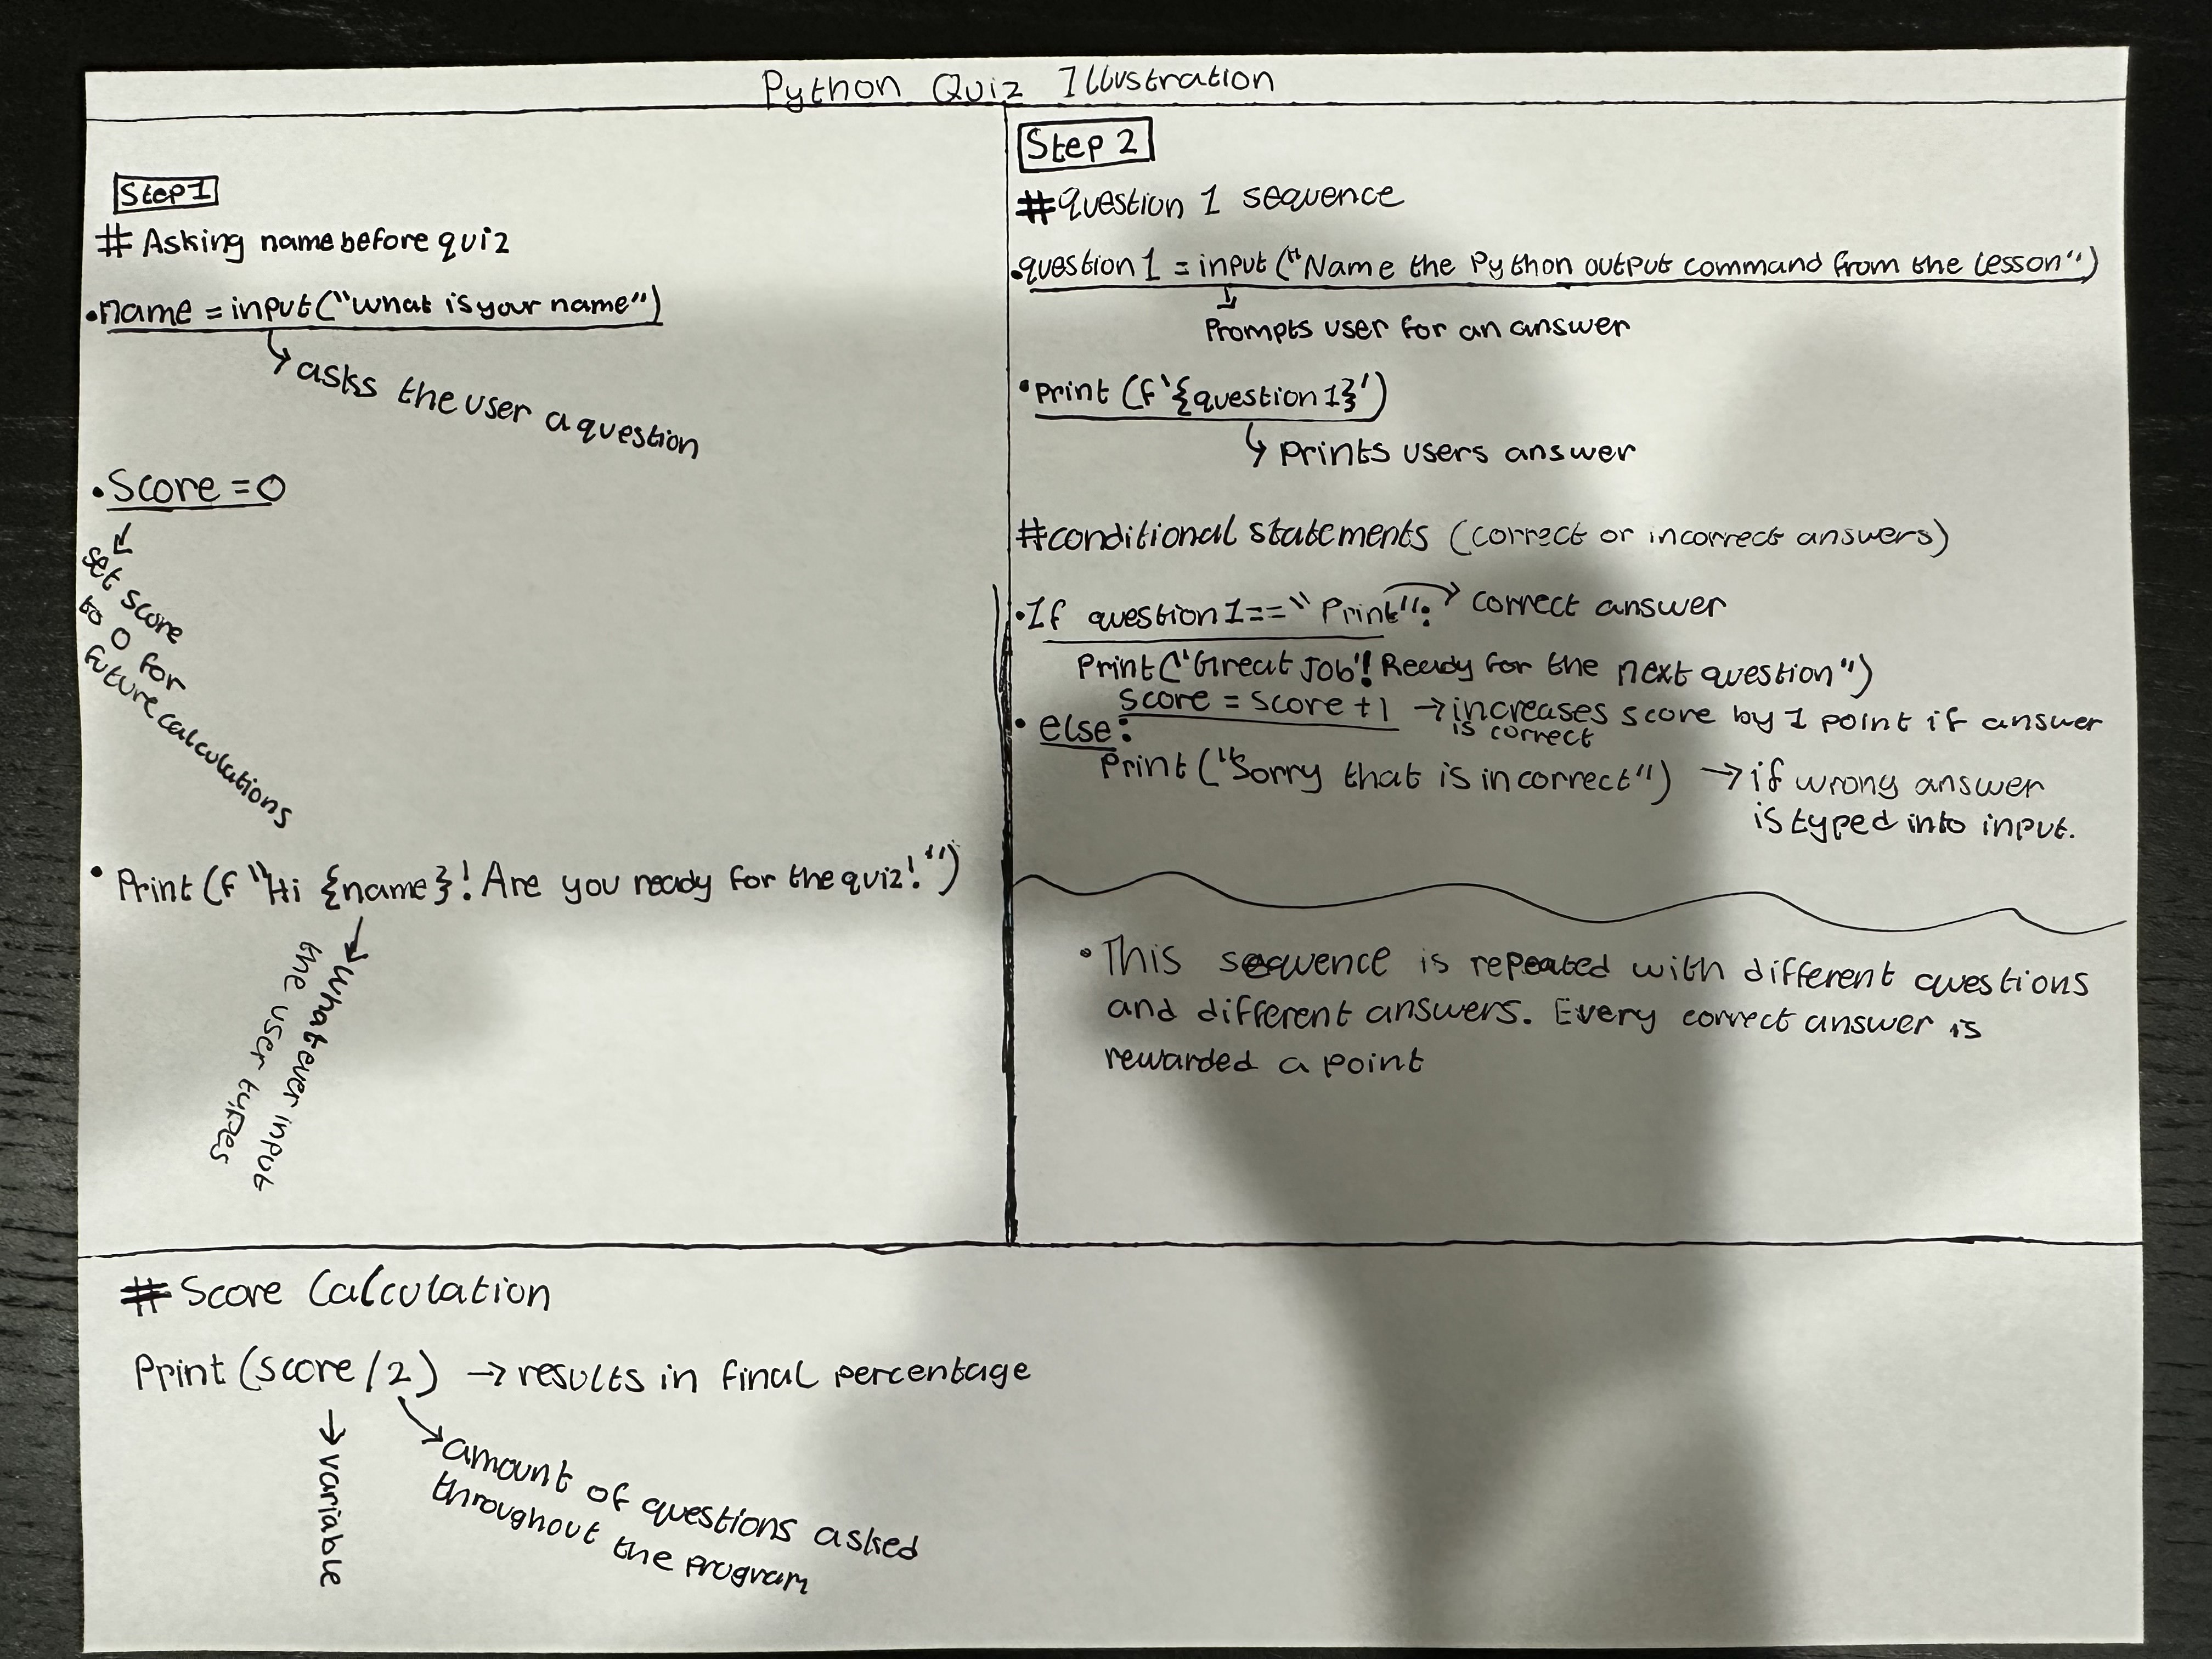 Python Quiz Illustration
Step 1
# Asking name before quiz
• name = input("what is your name")
↳ asks the user a question
• Score = 0
set score
to 0 for
future calculations
• Print (f"Hi {name}! Are you ready for the quiz!")
whatever input
the user types
Step 2
# question 1 sequence
• question 1 = input ("Name the Python output command from the lesson")
Prompts user for an answer
• print (f'{question 1}')
↳ prints users answer
# conditional statements (correct or incorrect answers)
• If question 1 == "Print": → correct answer
Print("Great Job! Ready for the next question")
score = score + 1 → increases score by 1 point if answer
is correct
• else:
Print ("Sorry that is incorrect") → if wrong answer
is typed into input.
• This sequence is repeated with different questions
and different answers. Every correct answer is
rewarded a point
# Score Calculation
Print (score / 2) → results in final percentage
variable
amount of questions asked
throughout the program